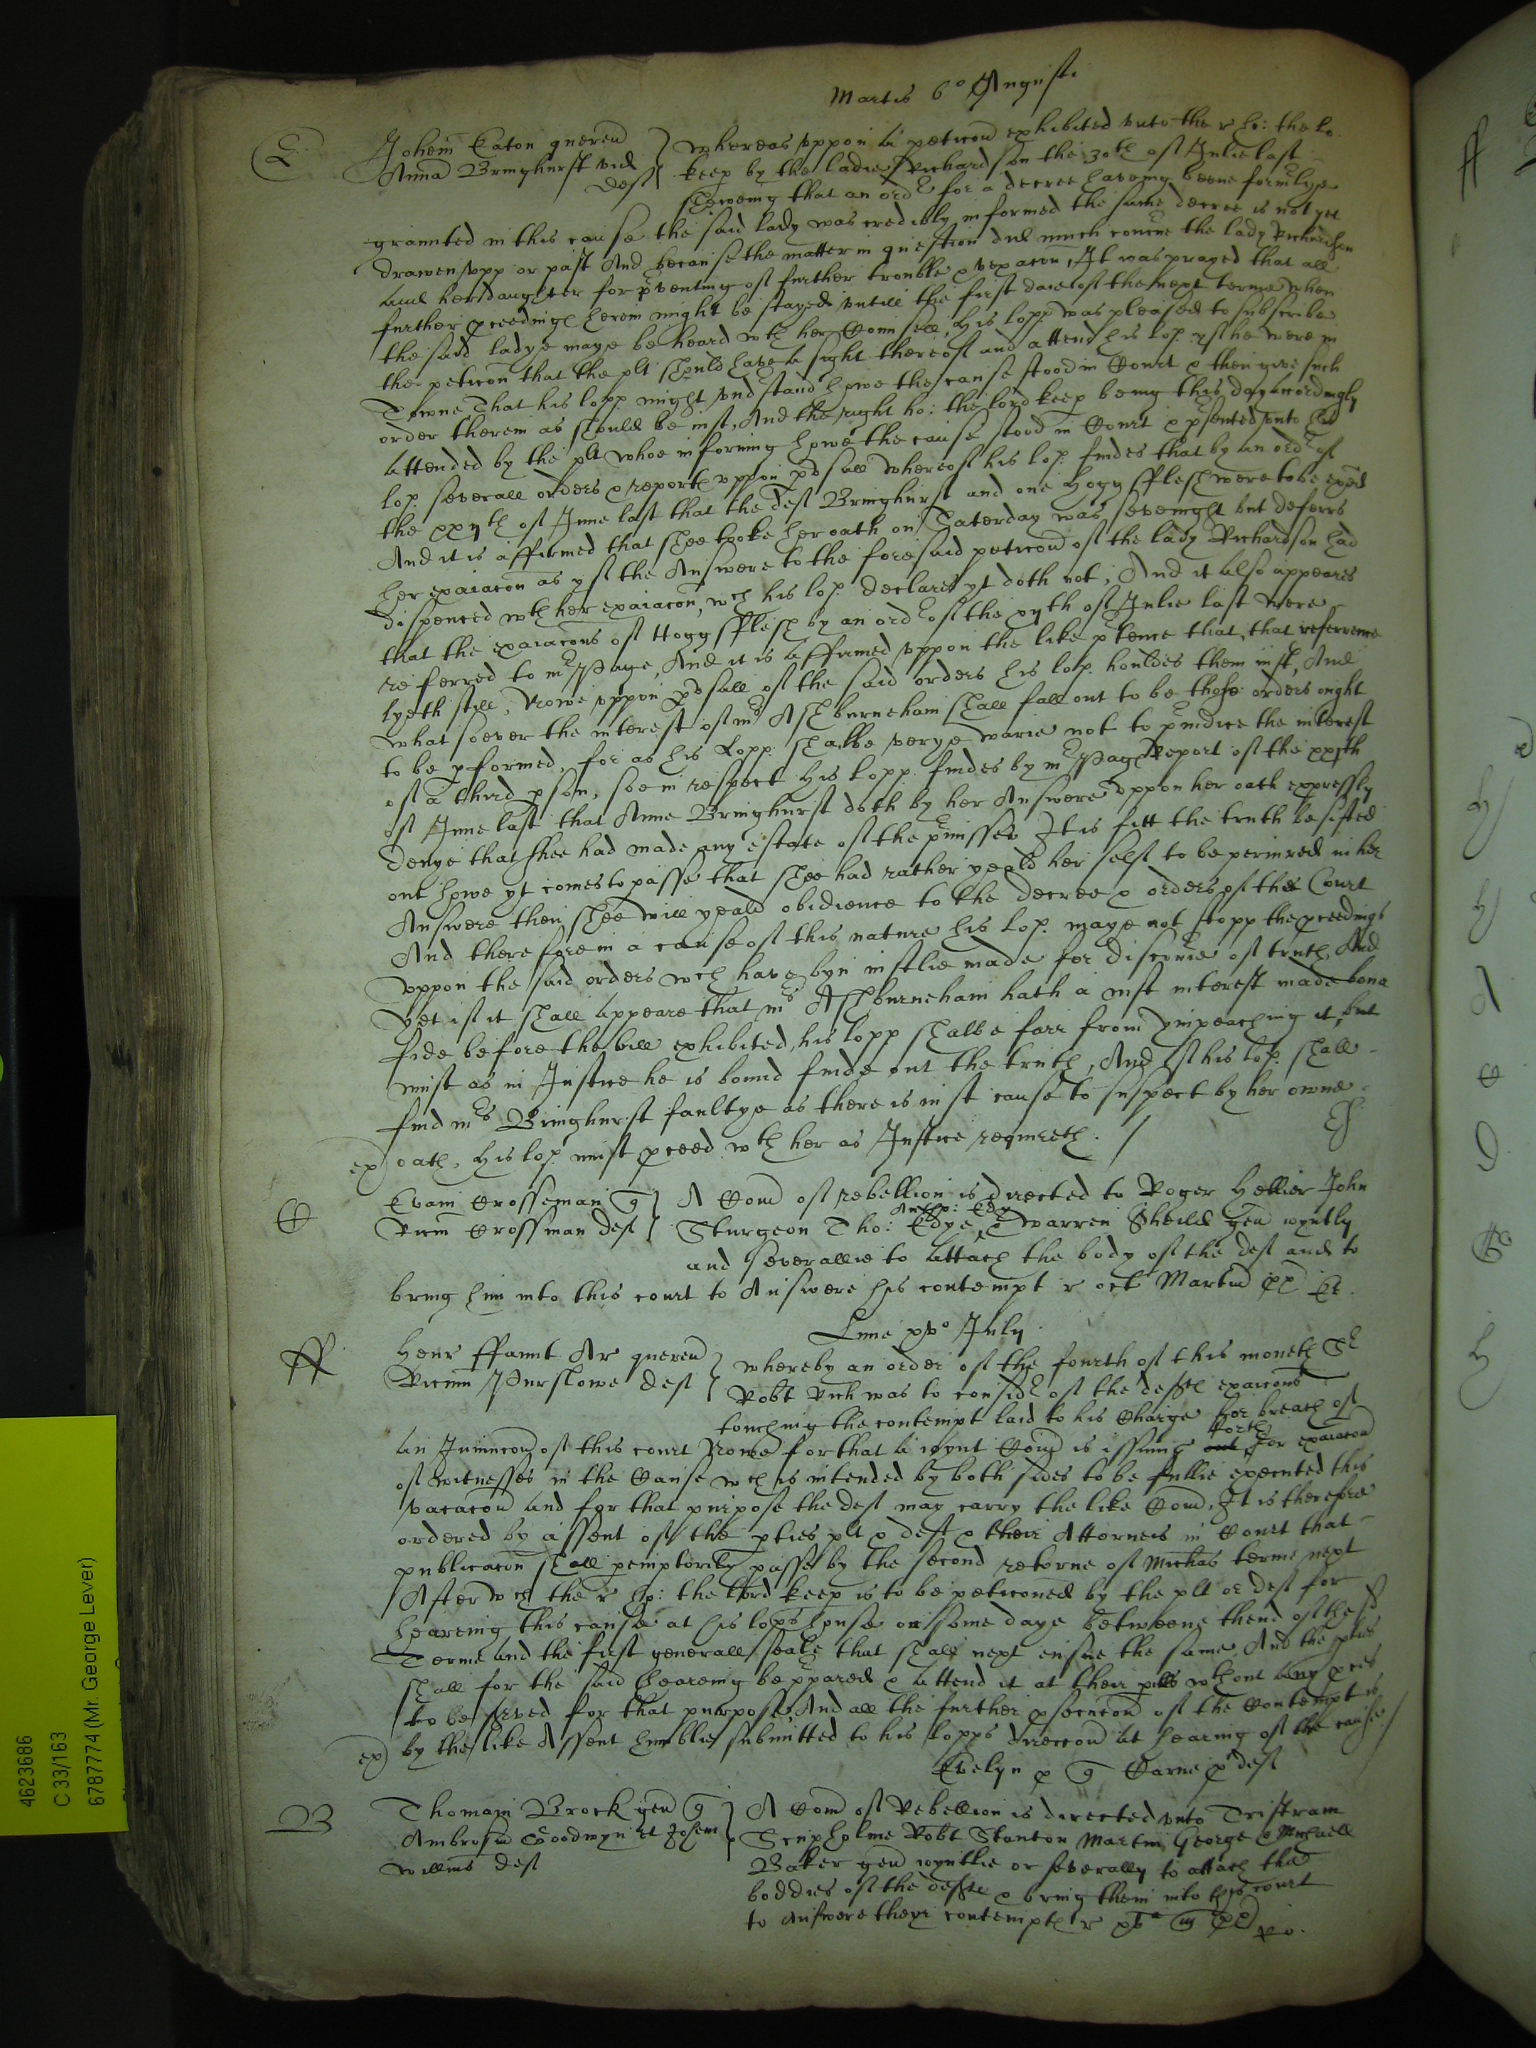 Martis 6o Augusti
E
Johem Eaton querend
Anna Bringhurst vid
deft
whereas uppon a peticon exhibited unto the r ho: the lo.
keep by the ladie Richardson the 30th of Julie last
shewing that an ordr for a decree haveing beene formerlye
graunted in this cause the said lady was credibly informed the same decree is not yet
drawen upp or past And because the matter in question did much concrne the lady Richardson
and her daughter for prventing of further trouble & vexacon, It was prayed that all
further pceedings herein might be stayed untill the first daie of the next terme when
the said ladye maye be heard wth her Counsell, His lopp was pleased to subscribe
the peticon that the plt should have a sight thereof and attend his lop yf he were in
Towne That his lopp might undrstand howe the cause stood in Court & then give such
order therein as should be iust, And the right ho: the lord keep being this day accordingly
attended by the plt whoe informing howe the cause stood in Court & prsented unto his
lop severall orders & reports uppon prusall whereof his lop findes that by an ordr of
the xxijth of June last that the deft Bringhurst and one Hoggsflesh were to be exaied
And it is affirmed that shee tooke her oath on Saterday was sevenight but deferrs
her exaiacon as yf the Answere to the foresaid peticon of the lady Richardson had
dispenced wth her exaiacon, wch his lop declares yt doth not, And it also appeares
that the exaiacons of Hoggsflesh by an ordr of the xijth of Julie last were
referred to mr Page, And it is affirmed uppon the like prtence that, that reference
lyeth still, Nowe uppon prusall of the said orders his lop houldes them iust, And
whatsoever the interest of mrs Ashburneham shall fall out to be those orders ought
to be pformed, for as his Lopp shalbe verye warie not to preiudice the interest
of a third pson, soe in respect His lopp findes by mr Pages Report of the xxjth
of June last that Anne Bringhurst doth by her Answere uppon her oath expressly
denye that shee had made any estate of the prmisses It is fitt the truth be sifted
out howe yt comes to passe that shee had rather yeald her self to be periured in her
Answere then shee will yeald obidience to the decree & orders of this Court
And therefore in a cause of this nature his lop. maye not stopp the pceedings
uppon the said orders wch have byn iustlie made for discovrie of truth And
Yet if it shall appeare that mrs Ashburneham hath a iust interest made bona
fide before the bill exhibited, his lopp shalbe farr from ympeaching it, but
must as in Justice he is bound finde out the truth, And if his lop. shall
find mrs Bringhurst faultye as there is iust cause to suspect by her owne
ex oath, His lop must pceed wth her as Justice requireth. /
C
Evan Crosseman q
Ricm Crossman deft
A Com of rebellion is directed to Roger Hellier John
Antho: Edy
Sturgeon Tho: Edye & Warren Sheild gen ioyntly
and severallie to attach the body of the deft and to
bring him into this court to Answere his contempt r oct Martin
Lune xvo July
ff
Henr ffannt Ar querend
Ricum Purslowe deft
whereby an order of the fourth of this moneth Sr
Robt Rich was to considr of the defts exaiacons
touching the contempt laid to his Charge for breach of
an Iniuncon of this court Nowe for that a ioynt Com is issuing forth for exaiacon
of witnesses in the Cause wch is intended by both sides to be fullie executed this
vacacon and for that purpose the deft may carry the like Com, It is therefore
ordered by assent of the pties plt & deft & their Attorneis in Court that
publicacon shall pemptorily passe by the second retorne of Michas terme next
After wch the r ho: the Lord keep is to be peticoned by the plt or deft for
heareing this cause at his lops house on some daye betweene thend of the sd
Terme and the first generall seale that shall next ensue the same, And the pties
shall for the said heareing be prpared & attend it at their pills wthout any pces
to be served for that purpose And all the further psecucon of the Contempt is
ex by the like Assent humblie submitted to his lopps direccon at hearing of the cause
Evelyn p q Carne p deft
B
Thomam Brock gen q
Ambrosiu Goodwyn et Josem
Willms deft
A Com of Rebellion is directed unto Tristram
Scupholme Robt Stanton Martin George & Michaell
Baker gen ioyntlie or severally to attach the
boddies of the defts & bring them into this court
to Answere theyr contempts r
4623686
C 33/163
6787774 (Mr. George Lever)